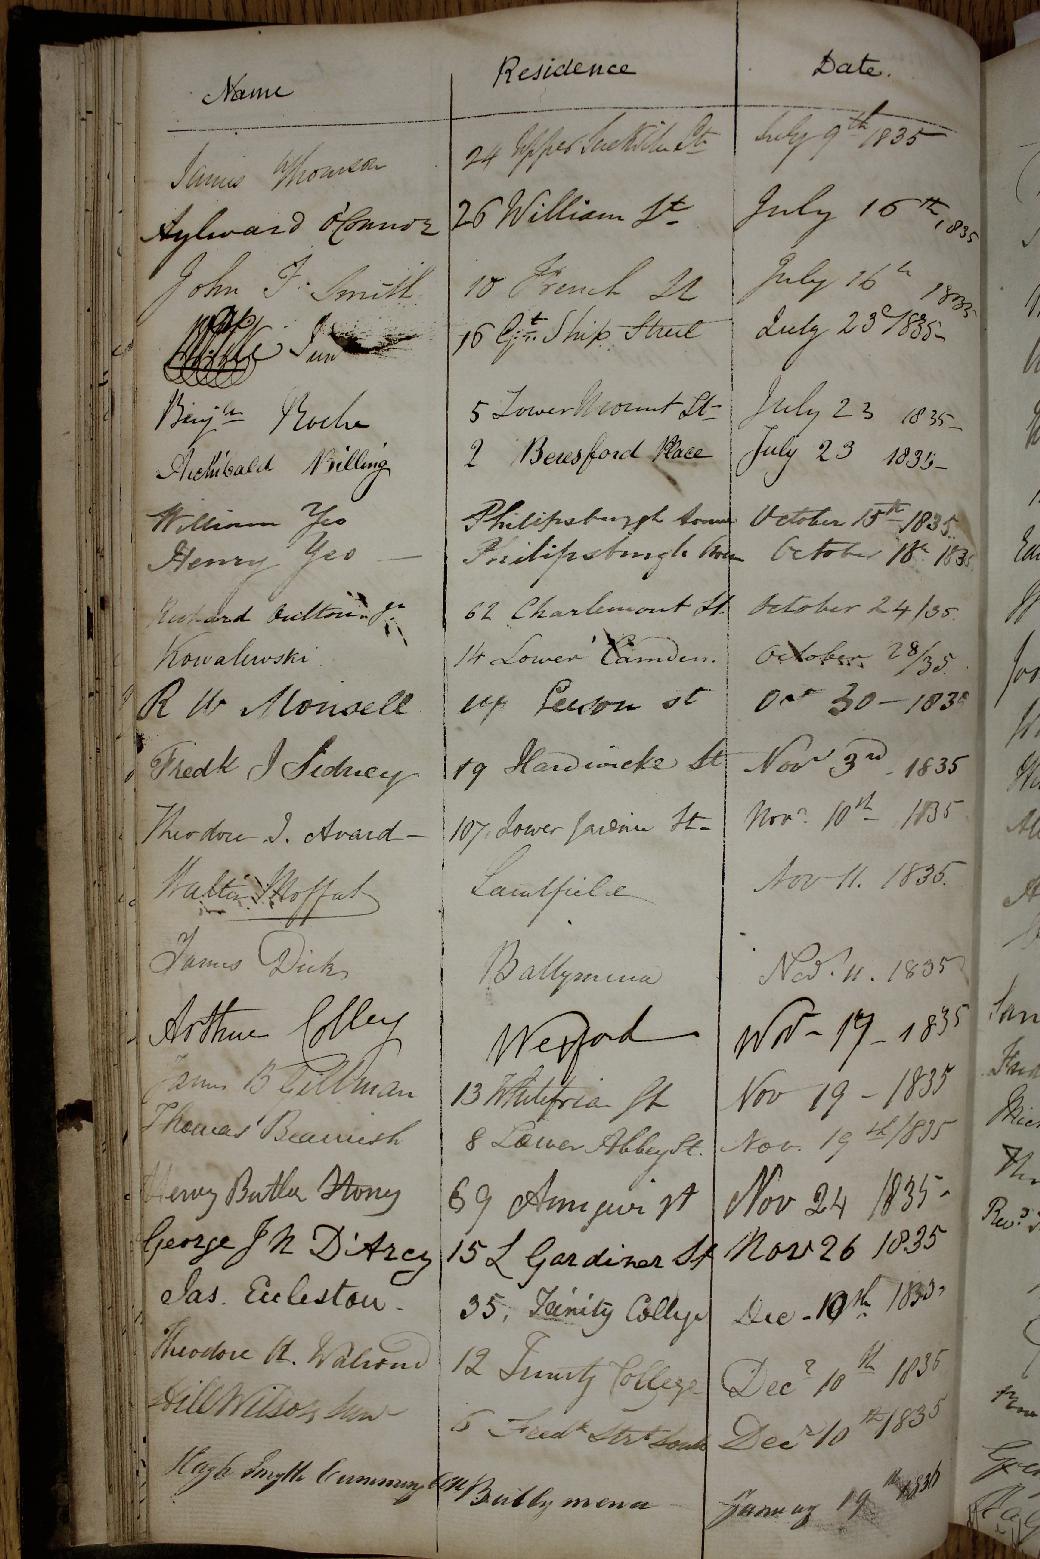 Name Residence Date.
James Thomson 24 Upper St July 9th 1835
Aylward O'Connor 26 William St July 16th, 1835
John F. Smith 10 French St July 16th 1835
Jun 16 Gt. Ship Street July 23d 1835
Benjn Roche 5 Lower Mount St July 23 1835
Archibald Billing 2 Beresford Place July 23 1835
William Yeo Philipsburgh Avenue October 15th 1835
Henry Yeo Philipsburgh October 18th 1835
Richard Oulton Jr 62 Charlemont St October 24/35
Kowalewski 14 Lower Camden October 28/35
R W Monsell 14 Leeson st Oct 30 - 1835
Fredk J Sidney 19 Hardwicke St Novr 3rd 1835
Theodore J. Avard 107, Lower St Novr 10th 1835
Walter Moffat Nov 11. 1835.
James Dick Ballymena Nov. 11. 1835
Arthur Colley Wexford Nov - 17 - 1835
James B Gillman 13 St Nov 19 - 1835
Thomas Beamish 8 Lower Abbey St. Nov. 19th/1835
Henry Butler Stoney 69 st Nov 24 1835
George J N D'Arcy 15 L Gardiner St Nov 26 1835
Jas. Eccleston 35, Trinity College Dec - 10th 1835
Theodore 12 Trinity College Decr 10th 1835
Hill Wilson 6 Fredk Strt South Decr 10th 1835
Hugh Smyth Cumming Ballymena January 19th 1836